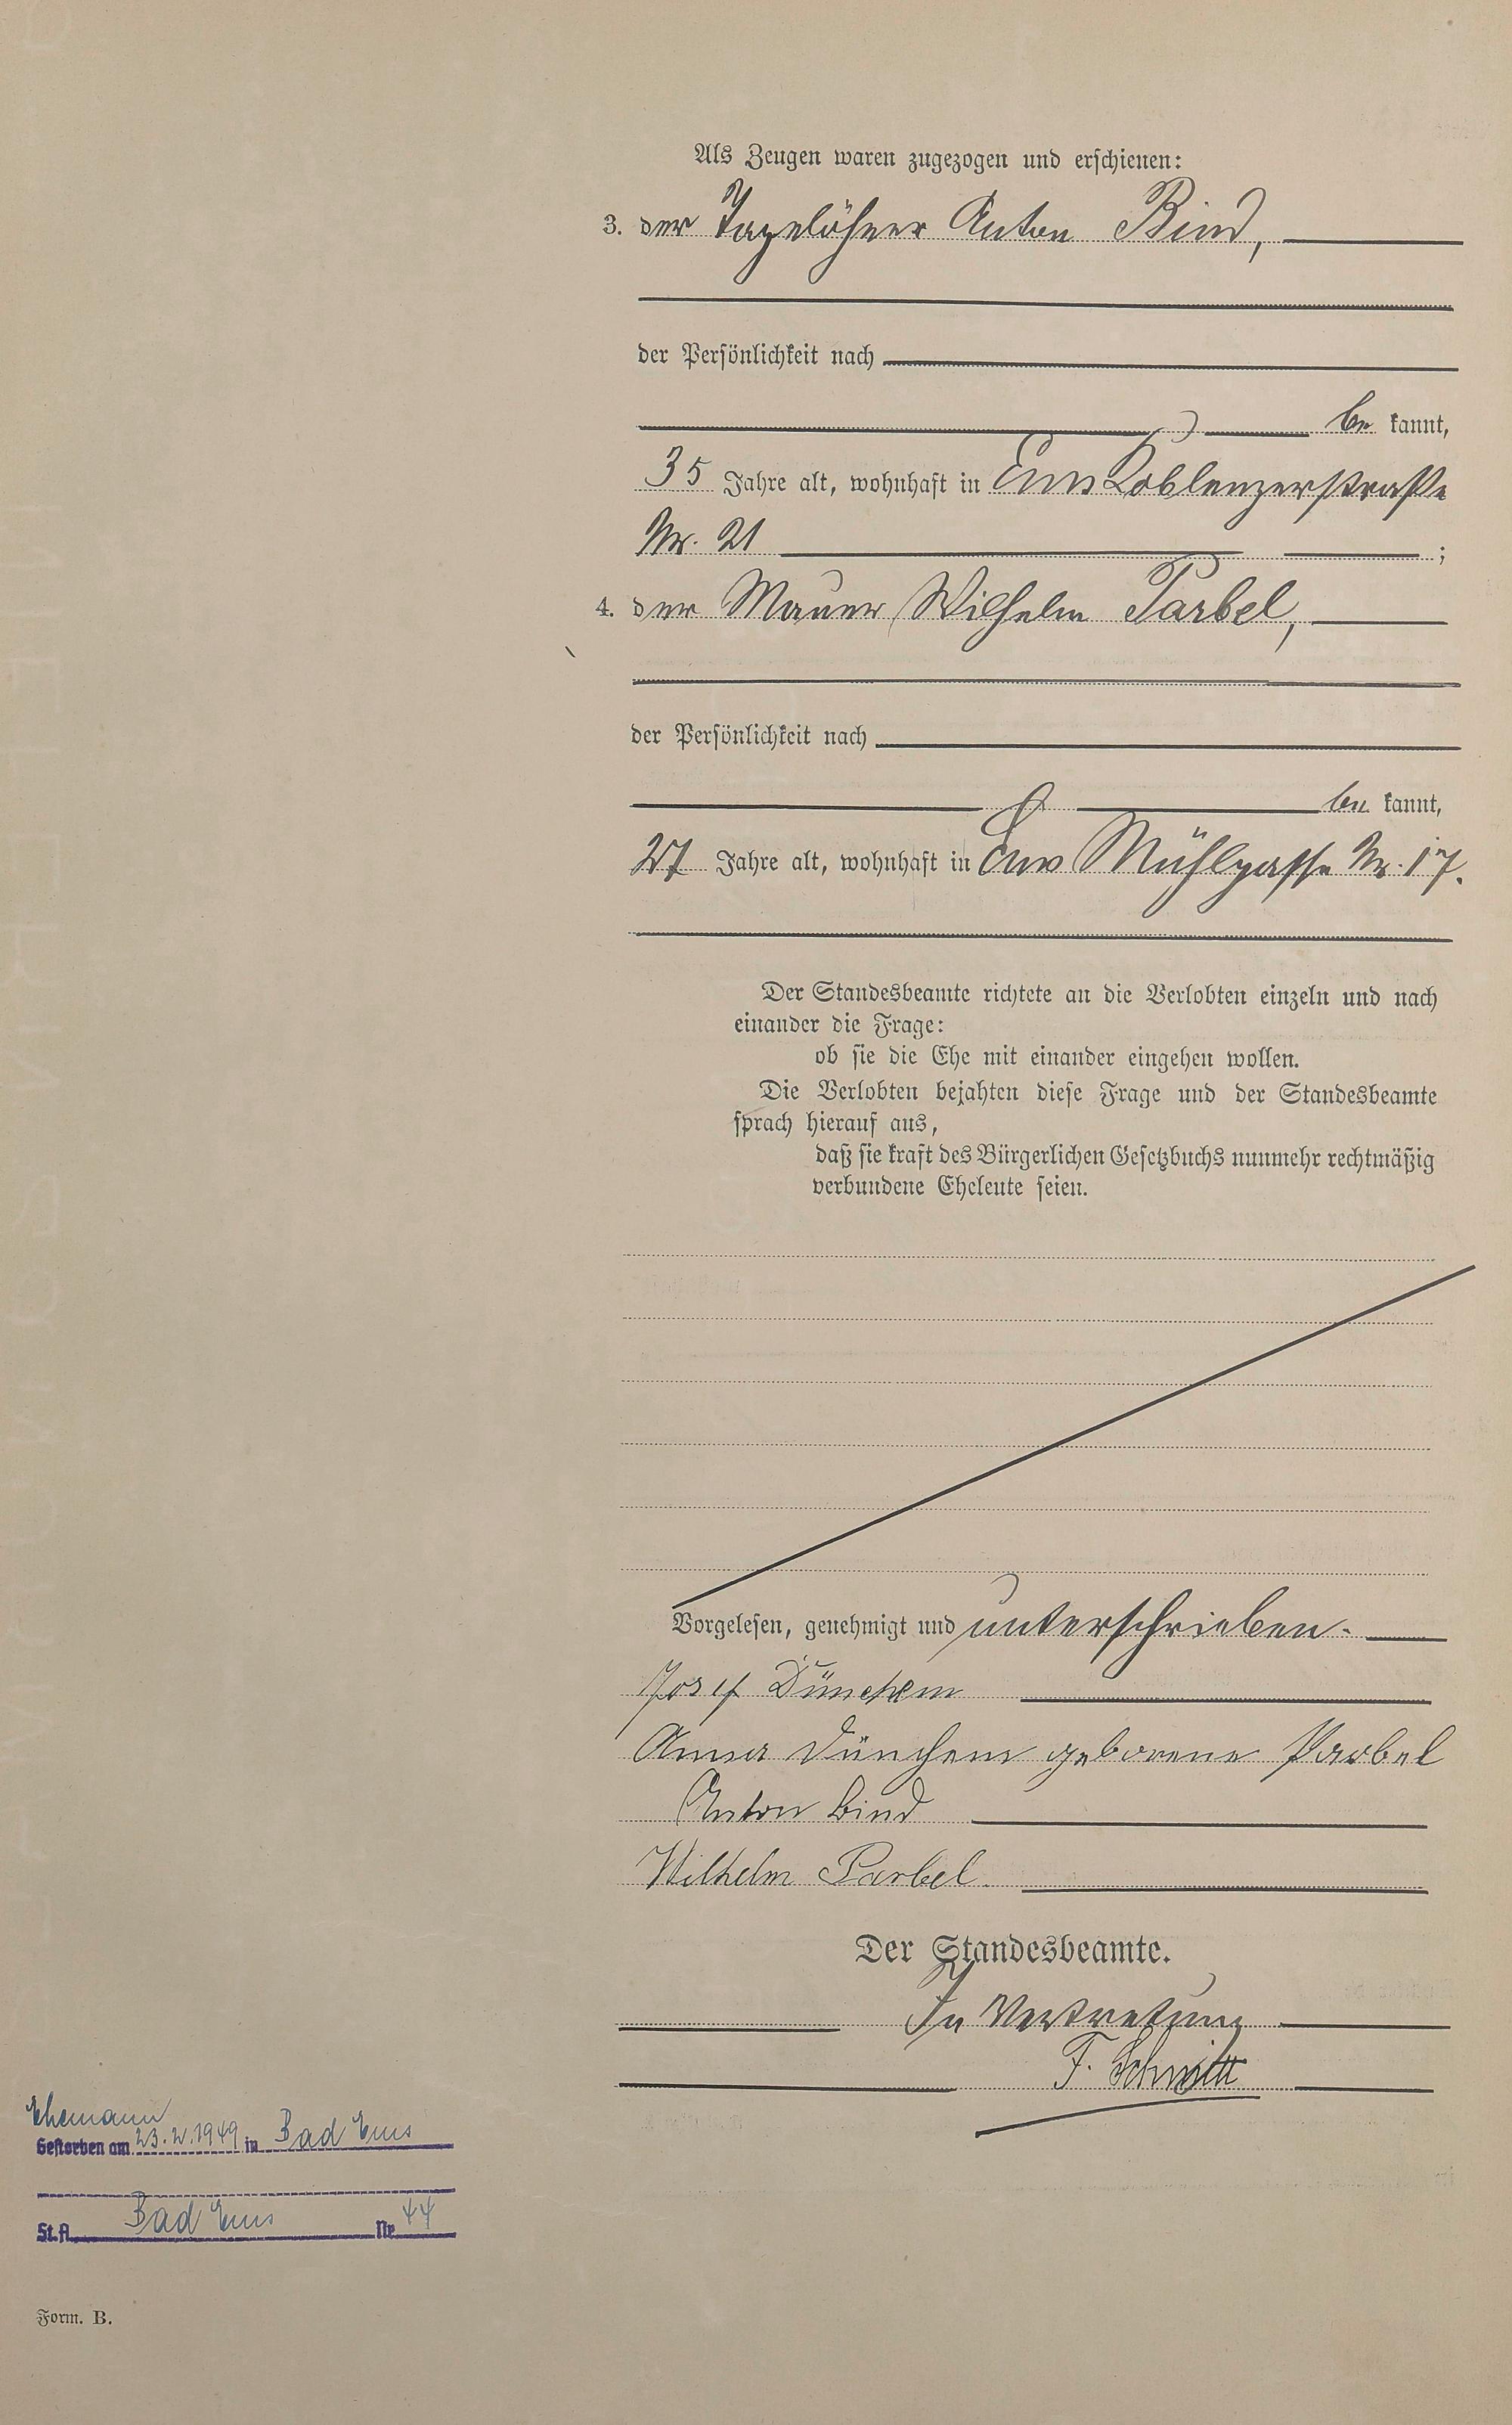 Als Zeugen waren zugezogen und erschienen:
3. der Tagelöhner Anton Bind,
der Persönlichkeit nach
be kannt,
35 Jahre alt, wohnhaft in Ems Koblenzerstraße
Nr. 21 ;
4. der Maurer Wilhelm Parbel,
der Persönlichkeit nach
be kannt,
27 Jahre alt, wohnhaft in Ems Mühlgasse Nr. 17.
Der Standesbeamte richtete an die Verlobten einzeln und nach
einander die Frage:
ob sie die Ehe mit einander eingehen wollen.
Die Verlobten bejahten diese Frage und der Standesbeamte
sprach hierauf aus,
daß sie kraft des Bürgerlichen Gesetzbuchs nunmehr rechtmäßig
verbundene Eheleute seien.
Vorgelesen, genehmigt und unterschrieben.
Josef Dünchem
Anna Dünchem geborene Parbel
Anton Bind
Wilhelm Parbel.
Der Standesbeamte.
In Vertretung
F. Schmitt
Ehemann
Gestorben am 23.2.1949 in Bad Ems
St.A. Bad Ems Nr 44
Form. B.